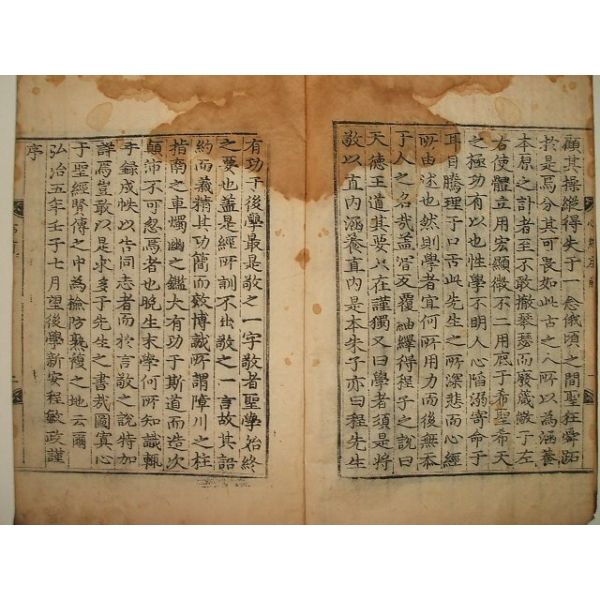 顧其操縱得失于一念俄頃之間聖狂舜跖
於是焉分其可畏如此古之人所以為涵養
本原之計者至不敢撤琴瑟而廢箴儆于左
右使體立用宏顯微不二用底于希聖希天
之極功有以也性學不明人心陷溺寄命于
耳目騰理于口舌此先生之所深悲而心經
所由述也然則學者宜何所用力而後無忝
于人之名哉盖嘗反覆紬繹得程子之說曰
天德王道其要只在謹獨又曰學者須是將
敬以直內涵養直內是本朱子亦曰程先生
有功于後學最是敬之一字敬者聖學始終
之要也盖是經所訓不出敬之一言故其語
約而義精其功簡而效博誠所謂障川之柱
指南之車燭幽之鑑大有功于斯道而造次
顛沛不可忽焉者也晚生末學何所知識輒
手錄成帙以告同志者而於言敬之說特加
詳焉豈敢以是求多子先生之書哉圖寡心
于聖經賢傳之中為檢防熟複之地云爾
弘治五年壬子七月望後學新安程敏政謹
序